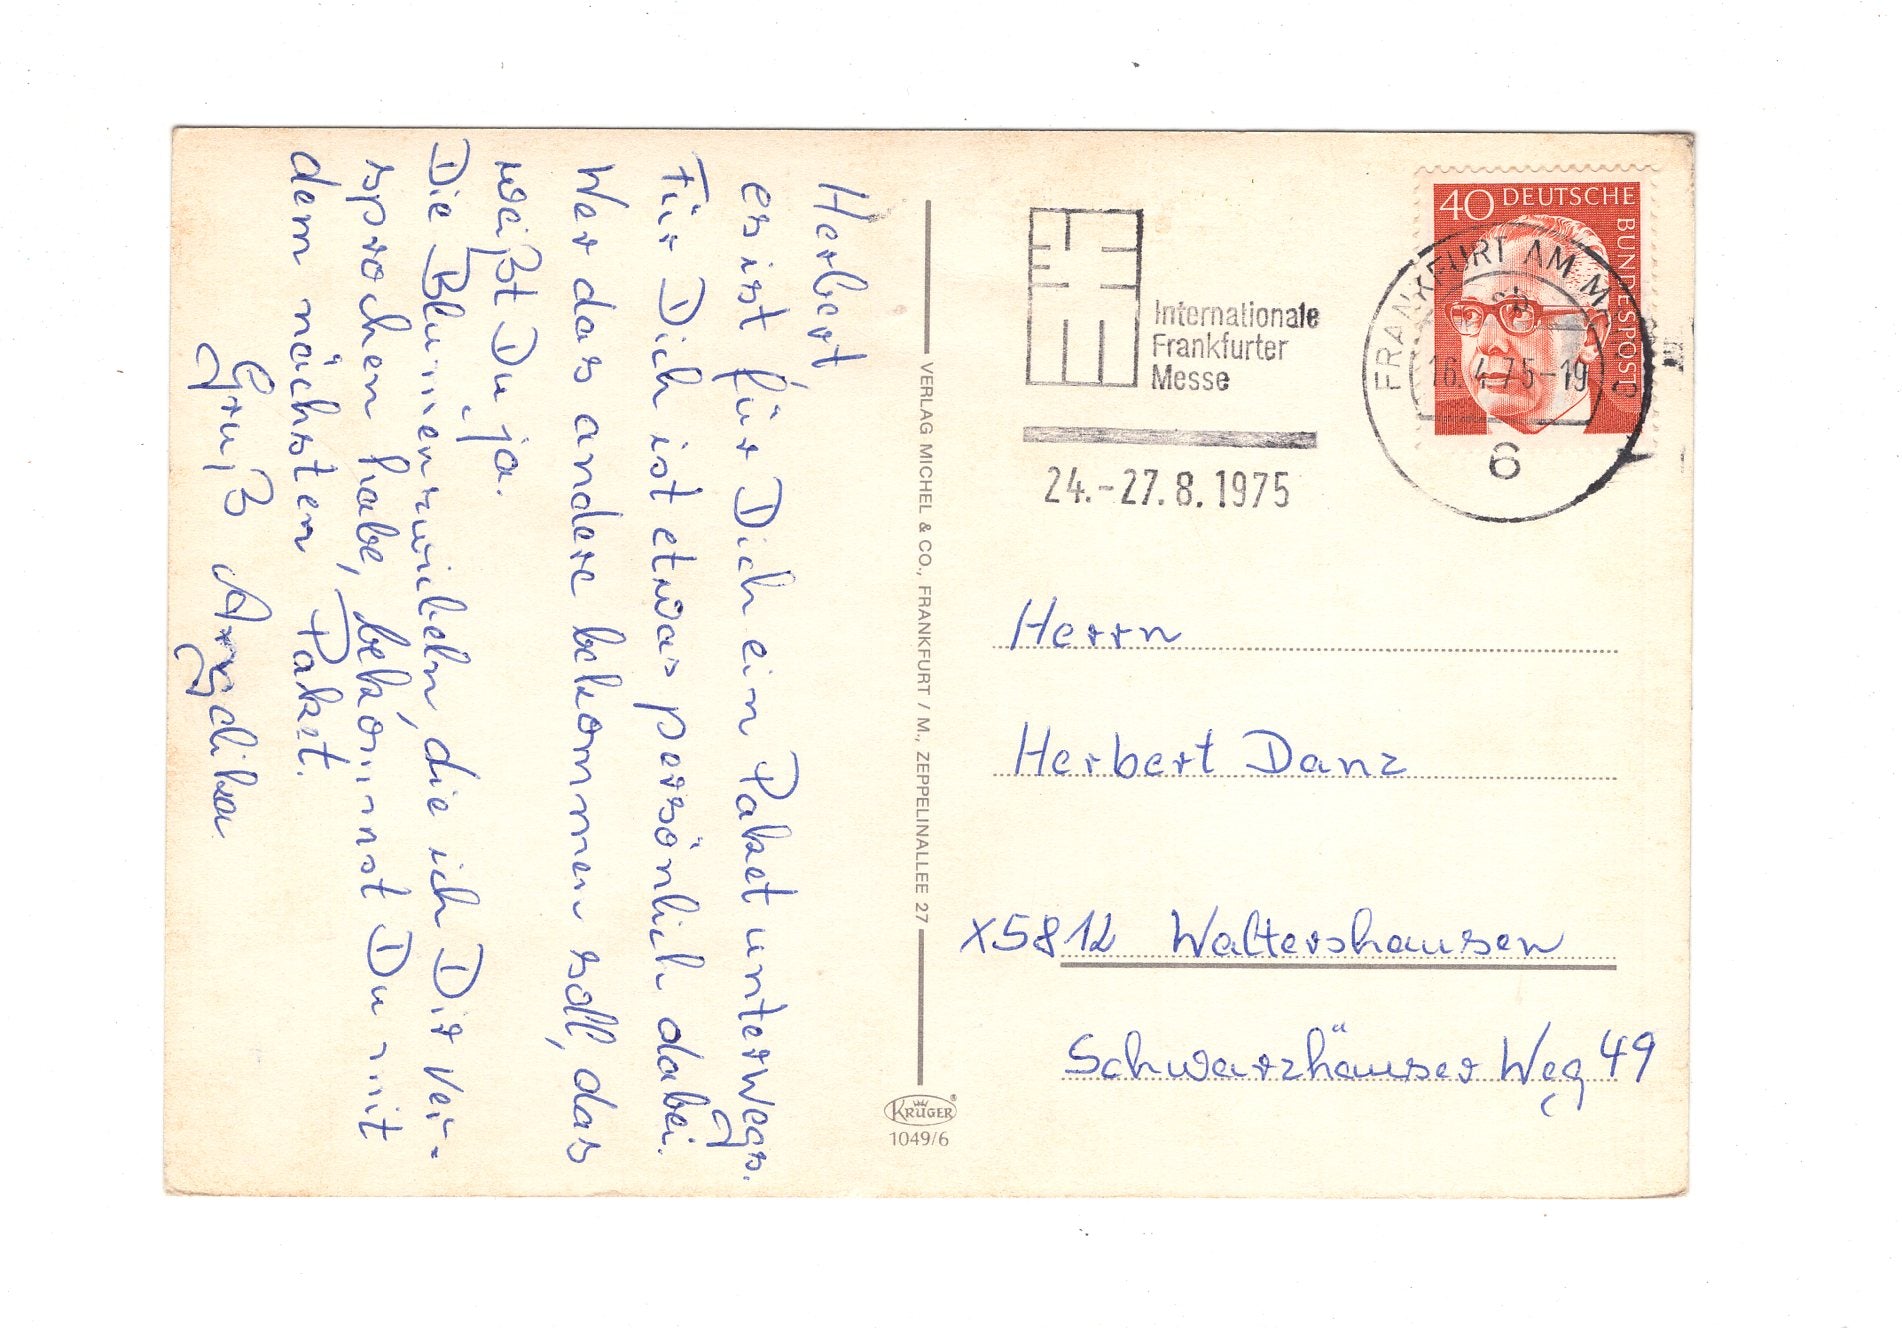 Herbert,
es ist für Dich ein Paket unterwegs.
Für Dich ist etwas persönlich dabei.
Wer das andere bekommen soll, das
weißt Du ja.
Die Blumenzwiebeln, die ich Dir ver-
sprochen habe, bekommst Du mit
dem nächsten Paket.
Gruß
VERLAG MICHEL & CO., FRANKFURT / M., ZEPPELINALLEE 27
KRÜGER
1049/6
Internationale
Frankfurter
Messe
24.-27.8.1975
40 DEUTSCHE
BUNDESPOST
FRANKFURT AM MAIN
16.4.75-19
6
Herrn
Herbert Danz
X5812 Waltershausen
Schwarzhäuser Weg 49